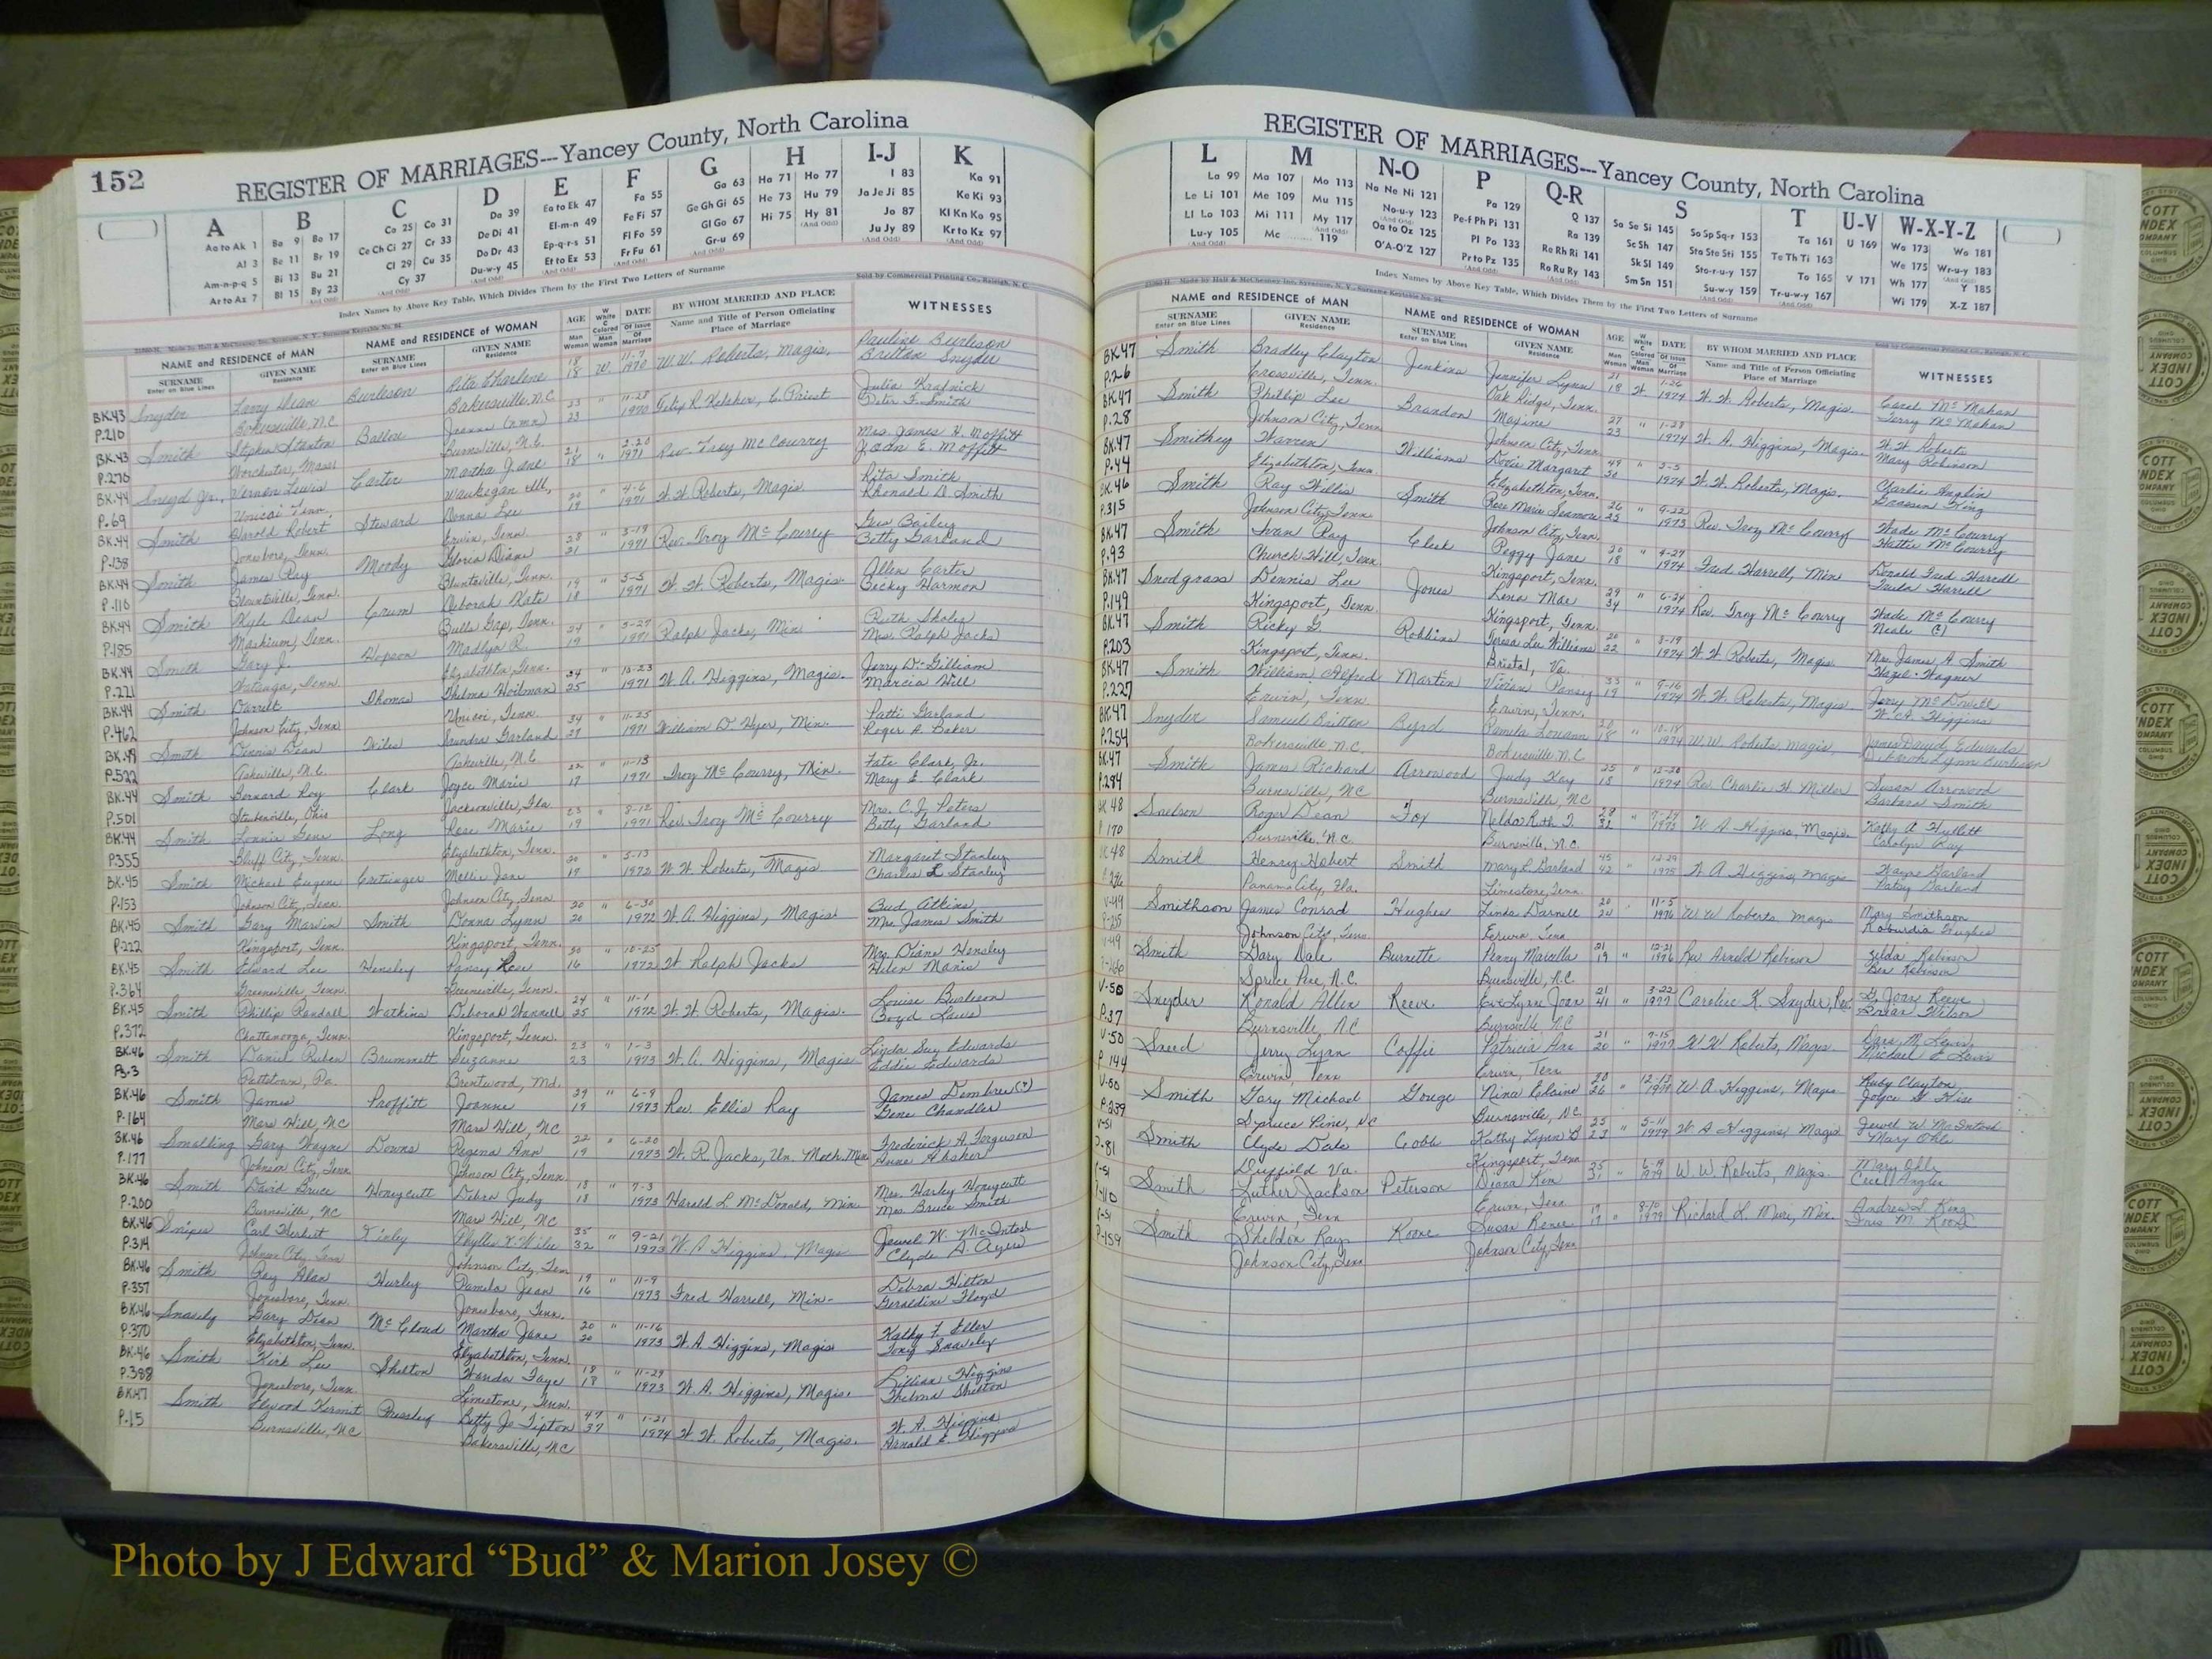 152
REGISTER OF MARRIAGES---Yancey County, North Carolina
A B C D E F G H I-J K
Aa to Ak 1
Al 3
Am-n-p-q 5
Ar to Az 7
Ba 9
Be 11
Bi 13
Bl 15
Bo 17
Br 19
Bu 21
By 23
Ca 25
Ce Ch Ci 27
Cl 29
Co 31
Cr 33
Cu 35
Cy 37
Da 39
De Di 41
Do Dr 43
Du-w-y 45
Ea to Ek 47
El-m-n 49
Ep-q-r-s 51
Et to Ez 53
Fa 55
Fe Fi 57
Fl Fo 59
Fr Fu 61
Ga 63
Ge Gh Gi 65
Gl Go 67
Gr-u 69
Ha 71
He 73
Hi 75
Ho 77
Hu 79
Hy 81
I 83
Ja Je Ji 85
Jo 87
Ju Jy 89
Ka 91
Ke Ki 93
Kl Kn Ko 95
Kr to Kz 97
Index Names by Above Key Table, Which Divides Them by the First Two Letters of Surname
Sold by Commercial Printing Co., Raleigh, N. C.
NAME and RESIDENCE OF MAN
SURNAME
Enter on Blue Lines
GIVEN NAME
Residence
NAME and RESIDENCE OF WOMAN
SURNAME
Enter on Blue Lines
GIVEN NAME
Residence
AGE
Man
Woman
W White
C Colored
DATE
Of Issue
Of Marriage
BY WHOM MARRIED AND PLACE
Name and Title of Person Officiating
Place of Marriage
WITNESSES
BK.43 Snyder Larry Dean Burleson Rita Charlene 18 W. 11-7 W.W. Roberts, Magis. Pauline Burleson
P.210 Bakersville, N.C. Bakersville N.C. 18 1970 Britton Snyder
BK.43 Smith Stephen Stanton Ballew 23 " 11-28 Julia
P.276 Worchester, Mass Burnsville, N.C. 23 1970 Peter F. Smith
BK.44 Sneyd Jr., Vernon Lewis Carter Martha Jane 21 " 2-20 Rev. Troy McCourry Mrs. James H. Moffitt
P.69 Unicoi Tenn. Waukegan Ill. 18 1971 Joan E. Moffitt
BK.44 Smith Harold Robert Steward Donna Lee 20 " 4-6 W.W. Roberts, Magis Rita Smith
P.138 Jonesboro, Tenn. Erwin, Tenn. 19 1971 Rhonald D Smith
BK.44 Smith James Ray Moody Gloria Diane 28 " 3-19 Rev. Troy McCourry Gus Bailey
P.110 Blountville, Tenn. Blountville, Tenn. 21 1971 Betty Garland
BK.44 Smith Kyle Dean Crum Deborah Kate 19 " 5-5 W.W. Roberts, Magis Allen Carter
P.185 Bulls Gap, Tenn. 18 1971 Becky Harmon
BK.44 Smith Gary J. Hopson Madlyn R. 24 " 5-29 Ralph Jacks, Min Ruth Sholes
P.221 Watauga, Tenn. Elizabethton, Tenn. 19 1971 Mrs. Ralph Jacks
BK.44 Smith Darrell Thomas Thelma Hoilman 24 " 10-23 W.A. Higgins, Magis. Jerry D. Gilliam
P.462 Johnson City, Tenn Unicoi, Tenn. 25 1971 Marcia Hill
BK.49 Smith Dennis Dean Wiles Saundra Garland 34 " 11-25 William D. Hyer, Min. Patti Garland
P.522 Asheville, N.C. Asheville, N.C 27 1971 Roger A. Baker
BK.44 Smith Bernard Roy Clark Joyce Marie 22 " 11-13 Troy McCourry, Min. Fate Clark, Jr.
P.501 Steubenville, Ohio Jacksonville, Fla. 17 1971 Mary E. Clark
BK.44 Smith Lonnie Gene Long Rose Marie 23 " 8-12 Rev. Troy McCourry Mrs. C.J. Peters
P.355 Bluff City, Tenn. Elizabethton, Tenn. 19 1971 Betty Garland
BK.45 Smith Michael Eugene Cretsinger Nellie Jane 20 " 5-13 W.W. Roberts, Magis Margaret Stanley
P.153 Johnson City, Tenn. Johnson City, Tenn. 19 1972 Charles L Stanley
BK.45 Smith Gary Marvin Smith Donna Lynn 20 " 6-30 W.A. Higgins, Magis Bud Atkins
P.222 Kingsport, Tenn. Kingsport, Tenn. 20 1972 Mrs. James Smith
BK.45 Smith Edward Lee Hensley Pansy Rose 20 " 10-25 W. Ralph Jacks Mrs. Diane Hensley
P.364 Greeneville, Tenn. Greeneville, Tenn. 16 1972 Helen Manis
BK.45 Smith Phillip Randall Watkins Deborah Hannell 24 " 11-1 W.W. Roberts, Magis. Louise Burleson
P.372 Chattanooga, Tenn. Kingsport, Tenn. 25 1972 Boyd Laws
BK.46 Smith Daniel Ruben Brummett Suzanne 23 " 1-3 W.A. Higgins, Magis Linda Sue Edwards
P.3 Pottstown, Pa. Brentwood, Md. 23 1973 Eddie Edwards
BK.46 Smith James Proffitt Joanne 29 " 6-9 Rev. Ellis Ray James
P.164 Mars Hill, NC Mars Hill, NC 19 1973 Gene Chandler
BK.46 Smalling Gary Wayne Downs Regina Ann 22 " 6-20 W.R. Jacks, Un. Meth. Min Frederick A. Ferguson
P.177 Johnson City, Tenn Johnson City, Tenn. 19 1973
BK.46 Smith David Bruce Honeycutt Debra Judy 18 " 7-3 Harold L McDonald, Min. Mrs. Harley Honeycutt
P.200 Burnsville, NC Mars Hill, NC 18 1973 Mrs. Bruce Smith
BK.46 Snipes Carl Herbert Finley 35 " 9-21 W.A Higgins, Magis Jewel W. McIntosh
P.314 Johnson City, Tenn Johnson City, Ten 32 1973 Clyde A. Ayers
BK.46 Smith Roy Alan Hurley Pamela Jean 19 " 11-9 Fred Harrell, Min- Debra Hilton
P.357 Jonesboro, Tenn. Jonesboro, Tenn. 16 1973 Geraldine Floyd
BK.46 Snavely Gary Dean McCloud Martha Jane 20 " 11-16 W.A. Higgins, Magis Kathy F. Eller
P.370 Elizabethton, Tenn. Elizabethton, Tenn. 20 1973 Tony Snavely
BK.46 Smith Kirk Lee Shelton Wanda Faye 18 " 11-29 W.A. Higgins, Magis. Lillian Higgins
P.388 Jonesboro, Tenn Limestone, Tenn. 18 1973 Thelma Shelton
BK.47 Smith Elwood Kermit Pressley Betty Jo Tipton 47 " 1-21 W.W. Roberts, Magis. W.A. Higgins
P.15 Burnsville, NC Bakersville, NC 37 1974 Arnold E. Higgins
REGISTER OF MARRIAGES---Yancey County, North Carolina
L M N-O P Q-R S T U-V W-X-Y-Z
La 99
Le Li 101
Ll Lo 103
Lu-y 105
Ma 107
Me 109
Mi 111
Mo 113
Mu 115
My 117
Mc 119
Na Ne Ni 121
No-u-y 123
Oa to Oz 125
O'A-O'Z 127
Pa 129
Pe-f Ph Pi 131
Pl Po 133
Pr to Pz 135
Q 137
Ra 139
Re Rh Ri 141
Ro Ru Ry 143
Sa Se Si 145
Sc Sh 147
Sk Sl 149
Sm Sn 151
So Sp Sq-r 153
Sta Ste Sti 155
Sto-r-u-y 157
Su-w-y 159
Ta 161
Te Th Ti 163
To 165
Tr-u-w-y 167
U 169
V 171
Wa 173
We 175
Wh 177
Wi 179
Wo 181
Wr-u-y 183
Y 185
X-Z 187
Index Names by Above Key Table, Which Divides Them by the First Two Letters of Surname
NAME and RESIDENCE OF MAN
SURNAME
Enter on Blue Lines
GIVEN NAME
Residence
NAME and RESIDENCE OF WOMAN
SURNAME
Enter on Blue Lines
GIVEN NAME
Residence
AGE
Man
Woman
DATE
Of Issue
Of Marriage
BY WHOM MARRIED AND PLACE
Name and Title of Person Officiating
Place of Marriage
WITNESSES
BK.47 Smith Bradley Clayton Jenkins Jennifer Lynn 21 W. 1-26 W.W. Roberts, Magis. Carol McMahan
P.26 Crossville, Tenn. Oak Ridge, Tenn. 18 1974 Terry McMahan
BK.47 Smith Phillip Lee Brandon Maxine 27 " 1-28 W.A. Higgins, Magis. W.W. Roberts
P.28 Johnson City, Tenn Johnson City, Tenn. 23 1974 Mary Robinson
BK.47 Smithey Warren Williams Dovie Margaret 49 " 3-5 W.W. Roberts, Magis. Charlie Anglin
P.44 Elizabethton, Tenn. Elizabethton, Tenn. 50 1974 King
BK.46 Smith Ray Willis Smith Rose Marie Seamore 26 " 9-22 Rev. Troy McCourry Wade McCourry
P.315 Johnson City, Tenn Johnson City, Tenn. 25 1973 Hattie McCourry
BK.47 Smith Ivan Ray Cleek Peggy Jane 20 " 4-27 Fred Harrell, Min Donald Fred Harrell
P.93 Church Hill, Tenn Kingsport, Tenn. 18 1974 Harrell
BK.47 Snodgrass Dennis Lee Jones Lena Mae 29 " 6-24 Rev. Troy McCourry Wade McCourry
P.149 Kingsport, Tenn. Kingsport, Tenn. 34 1974
BK.47 Smith Ricky G. Robbins Teresa Lee Williams 20 " 8-19 W.W. Roberts, Magis Mrs. James A Smith
P.203 Kingsport, Tenn. Bristol, Va. 22 1974 Hazel Wagner
BK.47 Smith William Alfred Martin Vivian Pansey 33 " 9-16 W.W. Roberts, Magis. Jerry McDowell
P.227 Erwin, Tenn Erwin, Tenn. 19 1974 W.A. Higgins
BK.47 Snyder Samuel Britton Byrd Pamela Louann 20 " 10-18 W.W. Roberts, Magis. James David Edwards
P.254 Bakersville, N.C. Bakersville N.C. 18 1974 Deborah Lynn Burleson
BK.47 Smith James Richard Arrowood Judy Kay 25 " 12-20 Rev. Charlie H. Miller Susan Arrowood
P.284 Burnsville, NC Burnsville, NC 18 1974 Barbara Smith
BK 48 Snelson Roger Dean Fox Nelda Ruth T. W A Higgins, Magis. Kathy A
P 170 Burnsville, N.C. Burnsville, N.C. Carolyn Ray
48 Smith Henry Hobert Smith Mary E Garland 45 " 12-29 W.A Higgins, Magis Wayne Garland
Panama City, Fla. Limestone, Tenn. 42 1975 Patsy Garland
V-49 Smithson James Conrad Hughes Linda Darnell 20 11-5 W W Roberts, Magis Mary Smithson
Johnson City, Tenn. Erwin, Tenn 20 1976 Hughes
V-49 Smith Gary Dale Burnette Penny Maicella 21 12-21 Rev Arnold Robinson Zelda Robinson
Spruce Pine, N.C. Burnsville, N.C. 19 " 1976 Ben Robinson
V-50 Snyder Ronald Allen Reeve Eve Lynne Joan 21 3-22 Caroline K. Snyder, Rev. G. Joan Reeve
P.37 Burnsville, NC Burnsville NC 41 " 1977 Brian Wilson
V-50 Sneed Jerry Lynn Coffie Patricia Ann 21 9-15 W W Roberts, Magis.
P 144 Erwin, Tenn Erwin, Tenn 20 " 1977 Michael E Lewis
V-50 Smith Gary Michael Gouge Nina Elaine 20 12-13 W.A Higgins, Magis Ruby Clayton
P.239 Spruce Pine, NC Burnsville, NC 26 " Joyce H. Wise
V-51 Smith Clyde Dale Cobb Kathy Lynn B 25 5-11 W A Higgins, Magis Jewel W. McIntosh
P.81 Duffield Va. Kingsport, Tenn 23 " 1979 Mary Ohle
Smith Luther Jackson Peterson Diana Kim 25 6-9 W.W. Roberts, Magis. Mary Ohle
Erwin, Tenn Erwin, Tenn 31 " 1979 Cecil Anglin
Smith Sheldon Ray Koone Susan Renee 19 8-10 Richard L. Muri, Min. Andrew L King
P-159 Johnson City, Tenn Johnson City, Tenn 17 " 1979 Iris M. Koone
COTT
INDEX
COMPANY
COLUMBUS
OHIO
Photo by J Edward “Bud” & Marion Josey ©